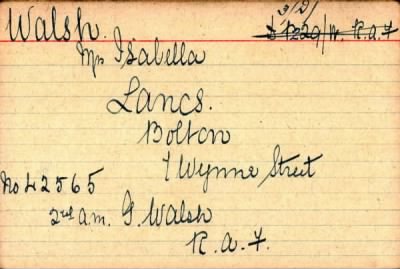 Walsh. 3/D/
R229/W. R.a.F
Mrs Isabella
Lancs.
Bolton
7 Wynne Street
No 42565
2nd a.m. G. Walsh
R.a.F.